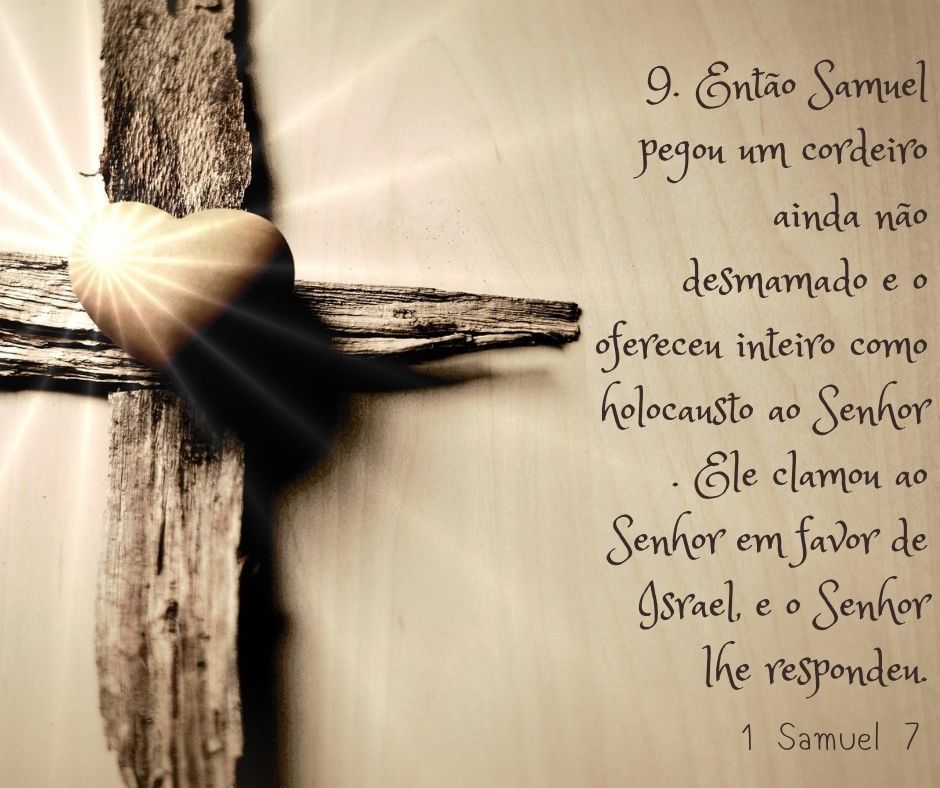 9. Então Samuel
pegou um cordeiro
ainda não
desmamado e o
ofereceu inteiro como
holocausto ao Senhor
. Ele clamou ao
Senhor em favor de
Israel, e o Senhor
lhe respondeu.
1 Samuel 7